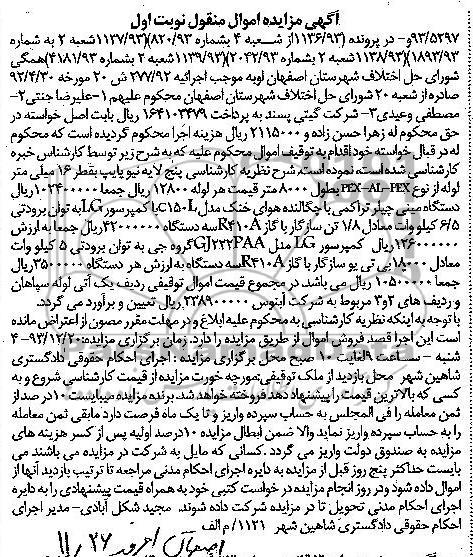 آگهی مزایده اموال منقول نوبت اول
۹۳/۵۲۹۷و- در پرونده (۱۱۳۶/۹۳از شعبه ۴ بشماره ۸۲۰/۹۳)(۱۱۳۷/۹۳شعبه ۲ به شماره
۱۸۹۳/۹۳)(۱۱۳۸/۹۳شعبه ۲ بشماره ۲۰۴۲/۹۳)(۱۱۳۹/۹۳شعبه ۴ بشماره ۴۱۸۱/۹۳)همگی
شورای حل اختلاف شهرستان اصفهان اوبه موجب اجرائیه ۲۷۷/۹۲ ش ۲۰ مورخه ۹۲/۴/۳۰
صادره از شعبه ۲۰ شورای حل اختلاف شهرستان اصفهان محکوم علیهم ۱-علیرضا جنتی۲-
مصطفی وعیدی۳- شرکت گیتی پسند به پرداخت ۱۶۴۱۰۳۴۷۹ ریال بابت اصل خواسته در
حق محکوم له زهرا حسن زاده و ۲۱۱۵۰۰۰ ریال هزینه اجرا محکوم گردیده است که محکوم
له در قبال خواسته خود اقدام به توقیف اموال محکوم علیه که به شرح زیر توسط کارشناس خبره
کارشناسی شده است، نموده است. شرح نظریه کارشناسی پنج لایه نیو پایپ بقطر ۱۶ میلی متر
لوله از نوع PEX-AL-PEX بطول ۸۰۰۰ متر قیمت هر لوله ۱۲۸۰۰ ریال جمعا ۱۰۲۴۰۰۰۰۰ ریال
دستگاه مینی چیلر تراکمی با چگالنده هوای خنک مدل C۱۵۰L با کمپرسور LG به توان برودتی
۶/۵ کیلو وات معادل ۱/۸ تن سازگار با گاز R۴۱۰A سه دستگاه ۴۲۰۰۰۰۰۰ ریال جمعا به ارزش
۱۲۶۰۰۰۰۰۰ ریال کمپرسور LG مدل GJ۲۲۲PAA گروه جی به توان برودتی ۵ کیلو وات
معادل ۱۸۰۰۰ بی تی یو سازگار با گاز R۴۱۰A سه دستگاه به ارزش هر دستگاه ۳۵۰۰۰۰۰ ریال
جمعا ۱۰۵۰۰۰۰۰ ریال می باشد در مجموع قیمت اموال توقیفی ردیف یک آتی لوله سپاهان
و ردیف های ۲و۳ مربوط به شرکت آبنوس ۲۳۸۹۰۰۰۰۰ ریال تعیین و برآورد می گردد.
با توجه به اینکه نظریه کارشناسی به محکوم علیه ابلاغ و در مهلت مقرر مصون از اعتراض مانده
است این اجرا قصد فروش اموال از طریق مزایده را دارد. زمان برگزاری مزایده: ۹۳/۱۲/۲۰-۴
شنبه - ساعت ۹لغایت ۱۰ صبح محل برگزاری مزایده : اجرای احکام حقوقی دادگستری
شاهین شهر محل بازدید از ملک توقیفی:مورچه خورت مزایده از قیمت کارشناسی شروع و به
کسی که بالاترین قیمت را پیشنهاد دهد فروخته خواهد شد. برنده مزایده میبایست ۱۰درصد از
ثمن معامله را فی المجلس به حساب سپرده واریز و تا یک ماه فرصت دارد مابقی ثمن معامله
را به حساب سپرده واریز نماید والا ضمن ابطال مزایده ۱۰درصد اولیه پس از کسر هزینه های
مزایده به صندوق دولت واریز می گردد .کسانی که مایل به شرکت در مزایده می باشند می
بایست حداکثر پنج روز قبل از مزایده به دایره اجرای احکام مدنی مراجعه تا ترتیب بازدید آنها از
اموال داده شود ودر روز انجام مزایده در خواست کتبی خود به همراه قیمت پیشنهادی را به دایره
اجرای احکام مدنی تحویل تا در مزایده شرکت داده شوند. مجید شکل آبادی- مدیر اجرای
احکام حقوقی دادگستری شاهین شهر ۱۱۲۱/ م الف
اصفهان امروز ۲۶ /۱۱